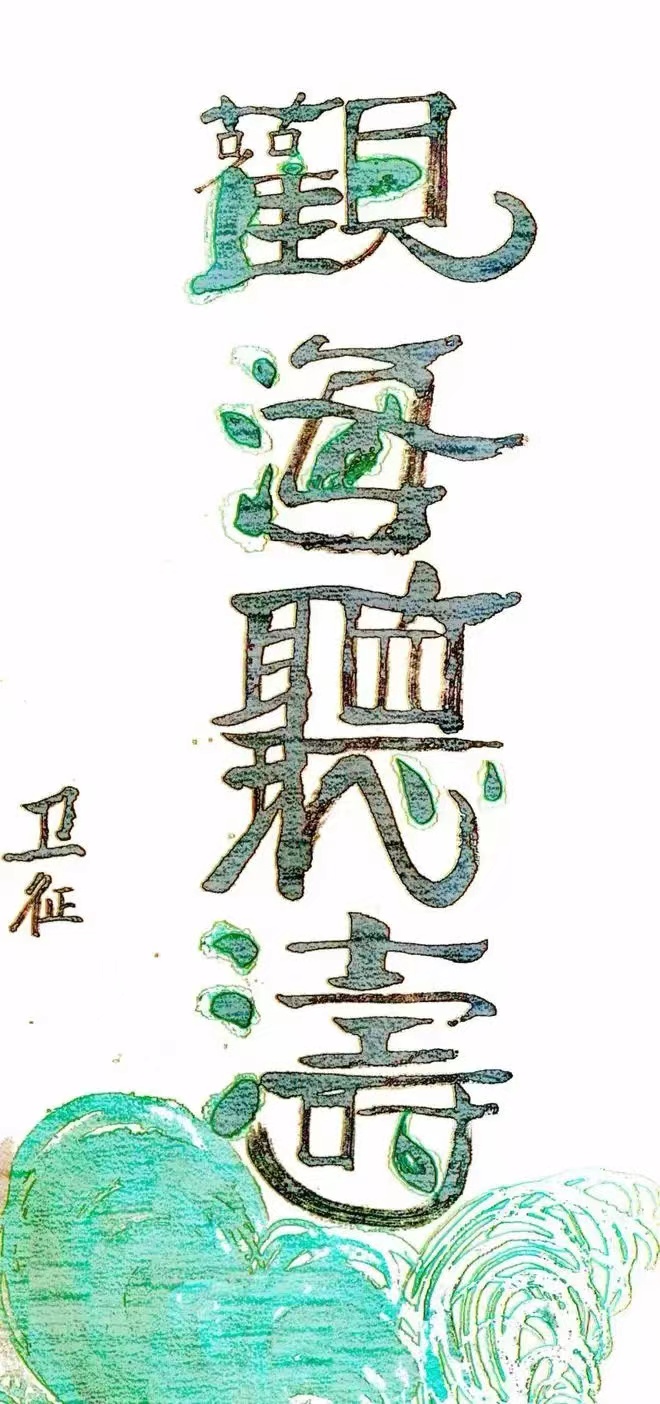 觀海聽濤
卫征